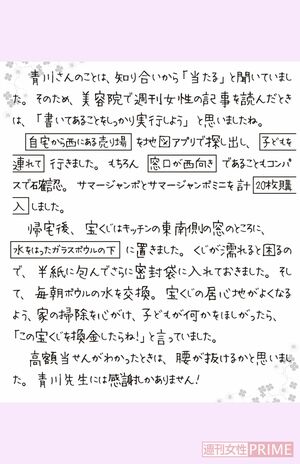 青川さんのことは、知り合いから「当たる」と聞いていまし
た。そのため、美容院で週刊女性の記事を読んだとき
は、「書いてあることをしっかり実行しよう」と思いましたね。
自宅から西にある売り場を地図アプリで探し出し、子どもを
連れて行きました。もちろん窓口が西向きであることもコンパ
スで確認。サマージャンボとサマージャンボミニを計20枚購
入しました。
帰宅後、宝くじはキッチンの東南側の窓のところに、
水をはったガラスボウルの下に置きました。くじが濡れると困るの
で、半紙に包んでさらに密封袋に入れておきました。そし
て、毎朝ボウルの水を交換。宝くじの居心地がよくなる
よう、家の掃除を心がけ、子どもが何かをほしがったら、
「この宝くじを換金したらね!」と言っていました。
高額当せんがわかったときは、腰が抜けるかと思いまし
た。青川先生には感謝しかありません!
週刊女性PRIME